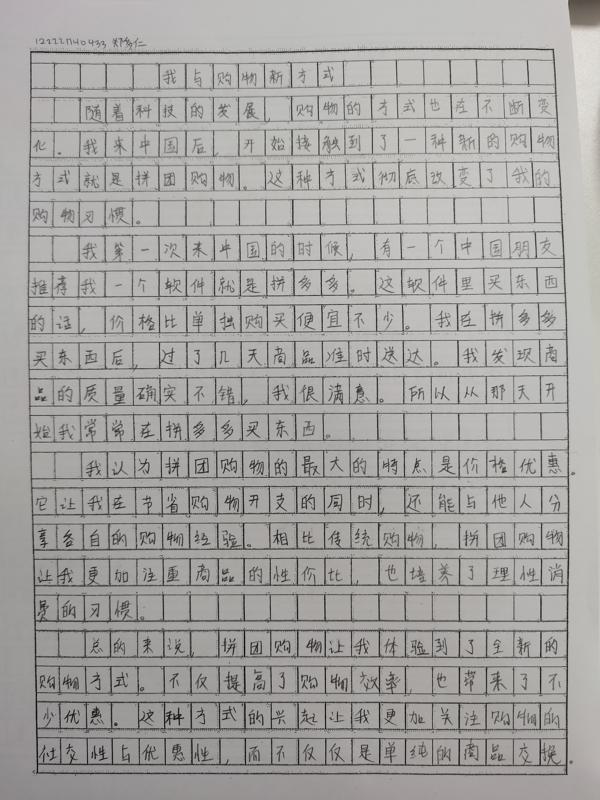 12222740433 郑多仁
我与购物新方式
随着科技的发展，购物的方式也在不断变
化。我来中国后，开始接触到了一种新的购物
方式就是拼团购物。这种方式彻底改变了我的
购物习惯。
我第一次来中国的时候，有一个中国朋友
推荐我一个软件就是拼多多。这软件里买东西
的话，价格比单独购买便宜不少。我在拼多多
买东西后，过了几天商品准时送达。我发现商
品的质量确实不错，我很满意。所以从那天开
始我常常在拼多多买东西。
我认为拼团购物的最大的特点是价格优惠。
它让我在节省购物开支的同时，还能与他人分
享各自的购物经验。相比传统购物，拼团购物
让我更加注重商品的性价比，也培养了理性消
费的习惯。
总的来说，拼团购物让我体验到了全新的
购物方式。不仅提高了购物效率，也带来了不
少优惠。这种方式的兴起让我更加关注购物的
社交性与优惠性，而不仅仅是单纯的商品交换。